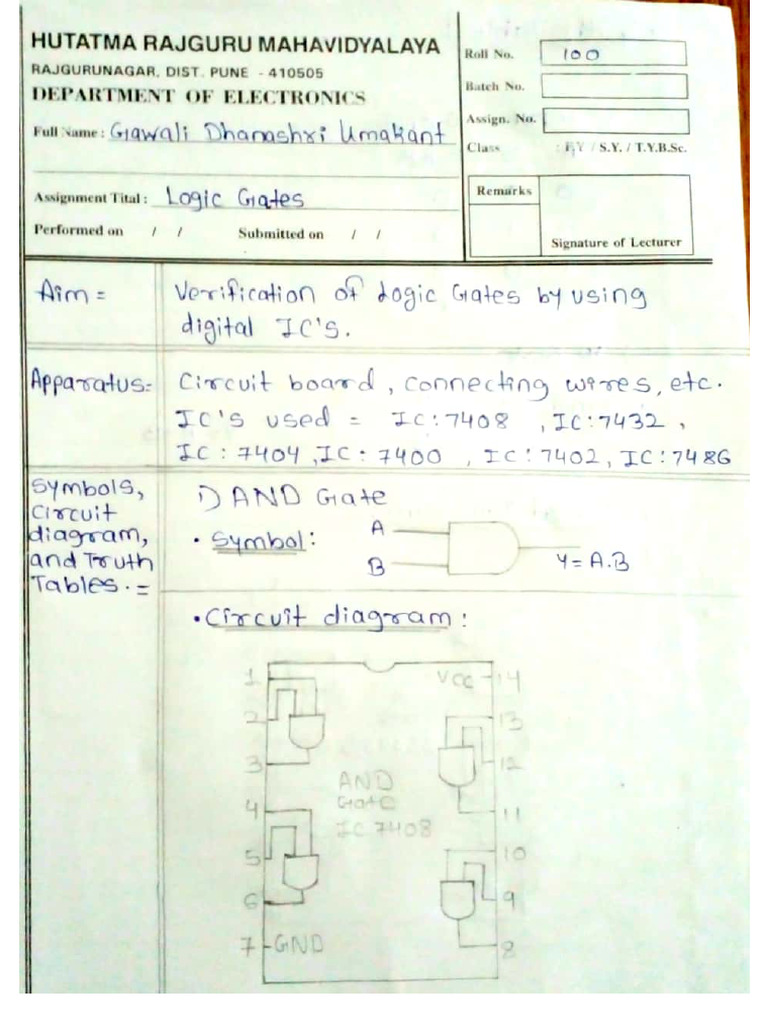 HUTATMA RAJGURU MAHAVIDYALAYA
RAJGURUNAGAR, DIST. PUNE - 410505
DEPARTMENT OF ELECTRONICS
Full Name : Gawali Dhanashri Umakant
Assignment Tital : Logic Gates
Performed on / / Submitted on / /
Roll No. 100
Batch No.
Assign. No.
Class : F.Y / S.Y. / T.Y.B.Sc.
Remarks
Signature of Lecturer
Aim =
Verification of Logic Gates by using
digital IC's.
Apparatus:=
Circuit board, connecting wires, etc.
IC's used = IC:7408 , IC:7432 ,
IC : 7404 , IC : 7400 , IC : 7402, IC: 7486
Symbols,
Circuit
diagram,
and Truth
Tables. =
1) AND Gate
• Symbol :
A
B
Y= A.B
• Circuit diagram :
1
2
3
4
5
6
7 GND
AND
Gate
IC 7408
VCC 14
13
12
11
10
9
8